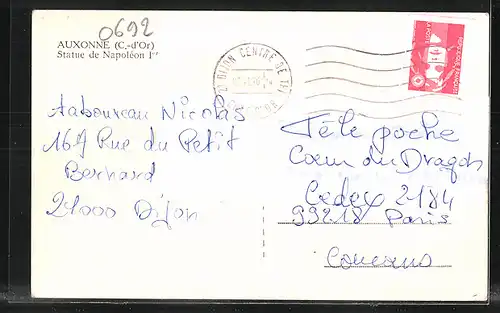 0692
AUXONNE (C.-d'Or)
Statue de Napoléon Iᵉʳ
21 DIJON CENTRE DE TRI
Nicolas
169 Rue du Petit
Bernard
21000 Dijon
Télé poche
Cœur du Dragon
Cedex 2184
99218 Paris
Concours